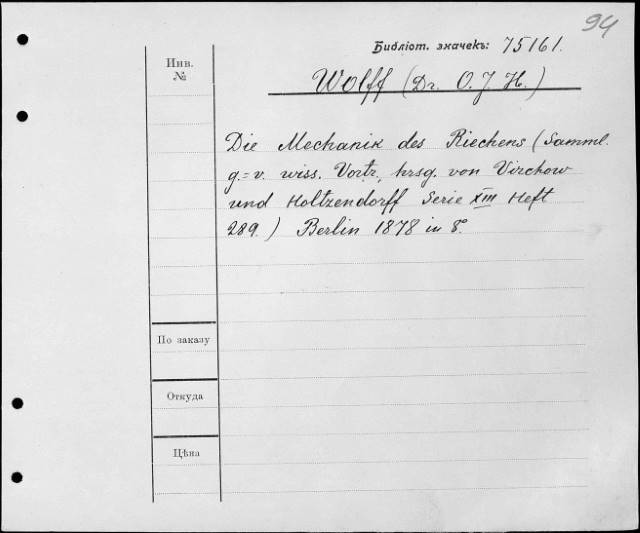 94
Библіот. значекъ: 75161.
Инв.
№
Wolff (Dr. O. J. H.)
Die Mechanik des Riechens (Samml.
g.=v. wiss. Vortr., hrsg. von Virchow
und Holtzendorff Serie XIII Heft
289.) Berlin 1878 in 8.
По заказу
Откуда
Цѣна